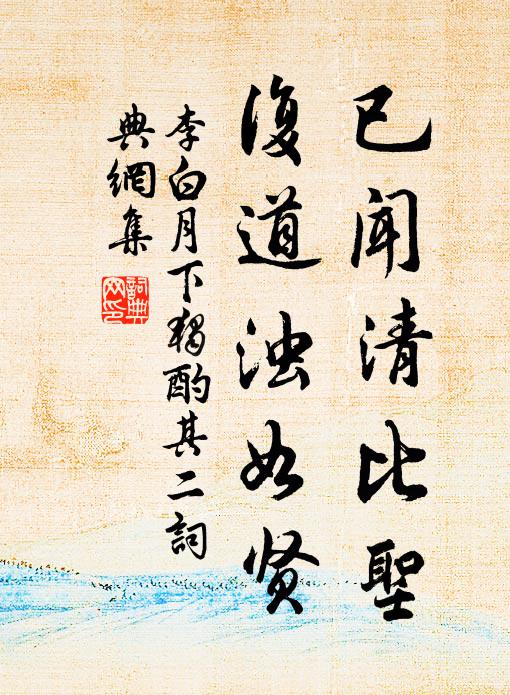 已闻清比聖
復道浊如贤
李白月下獨酌其二詞
典網集
詞典网印